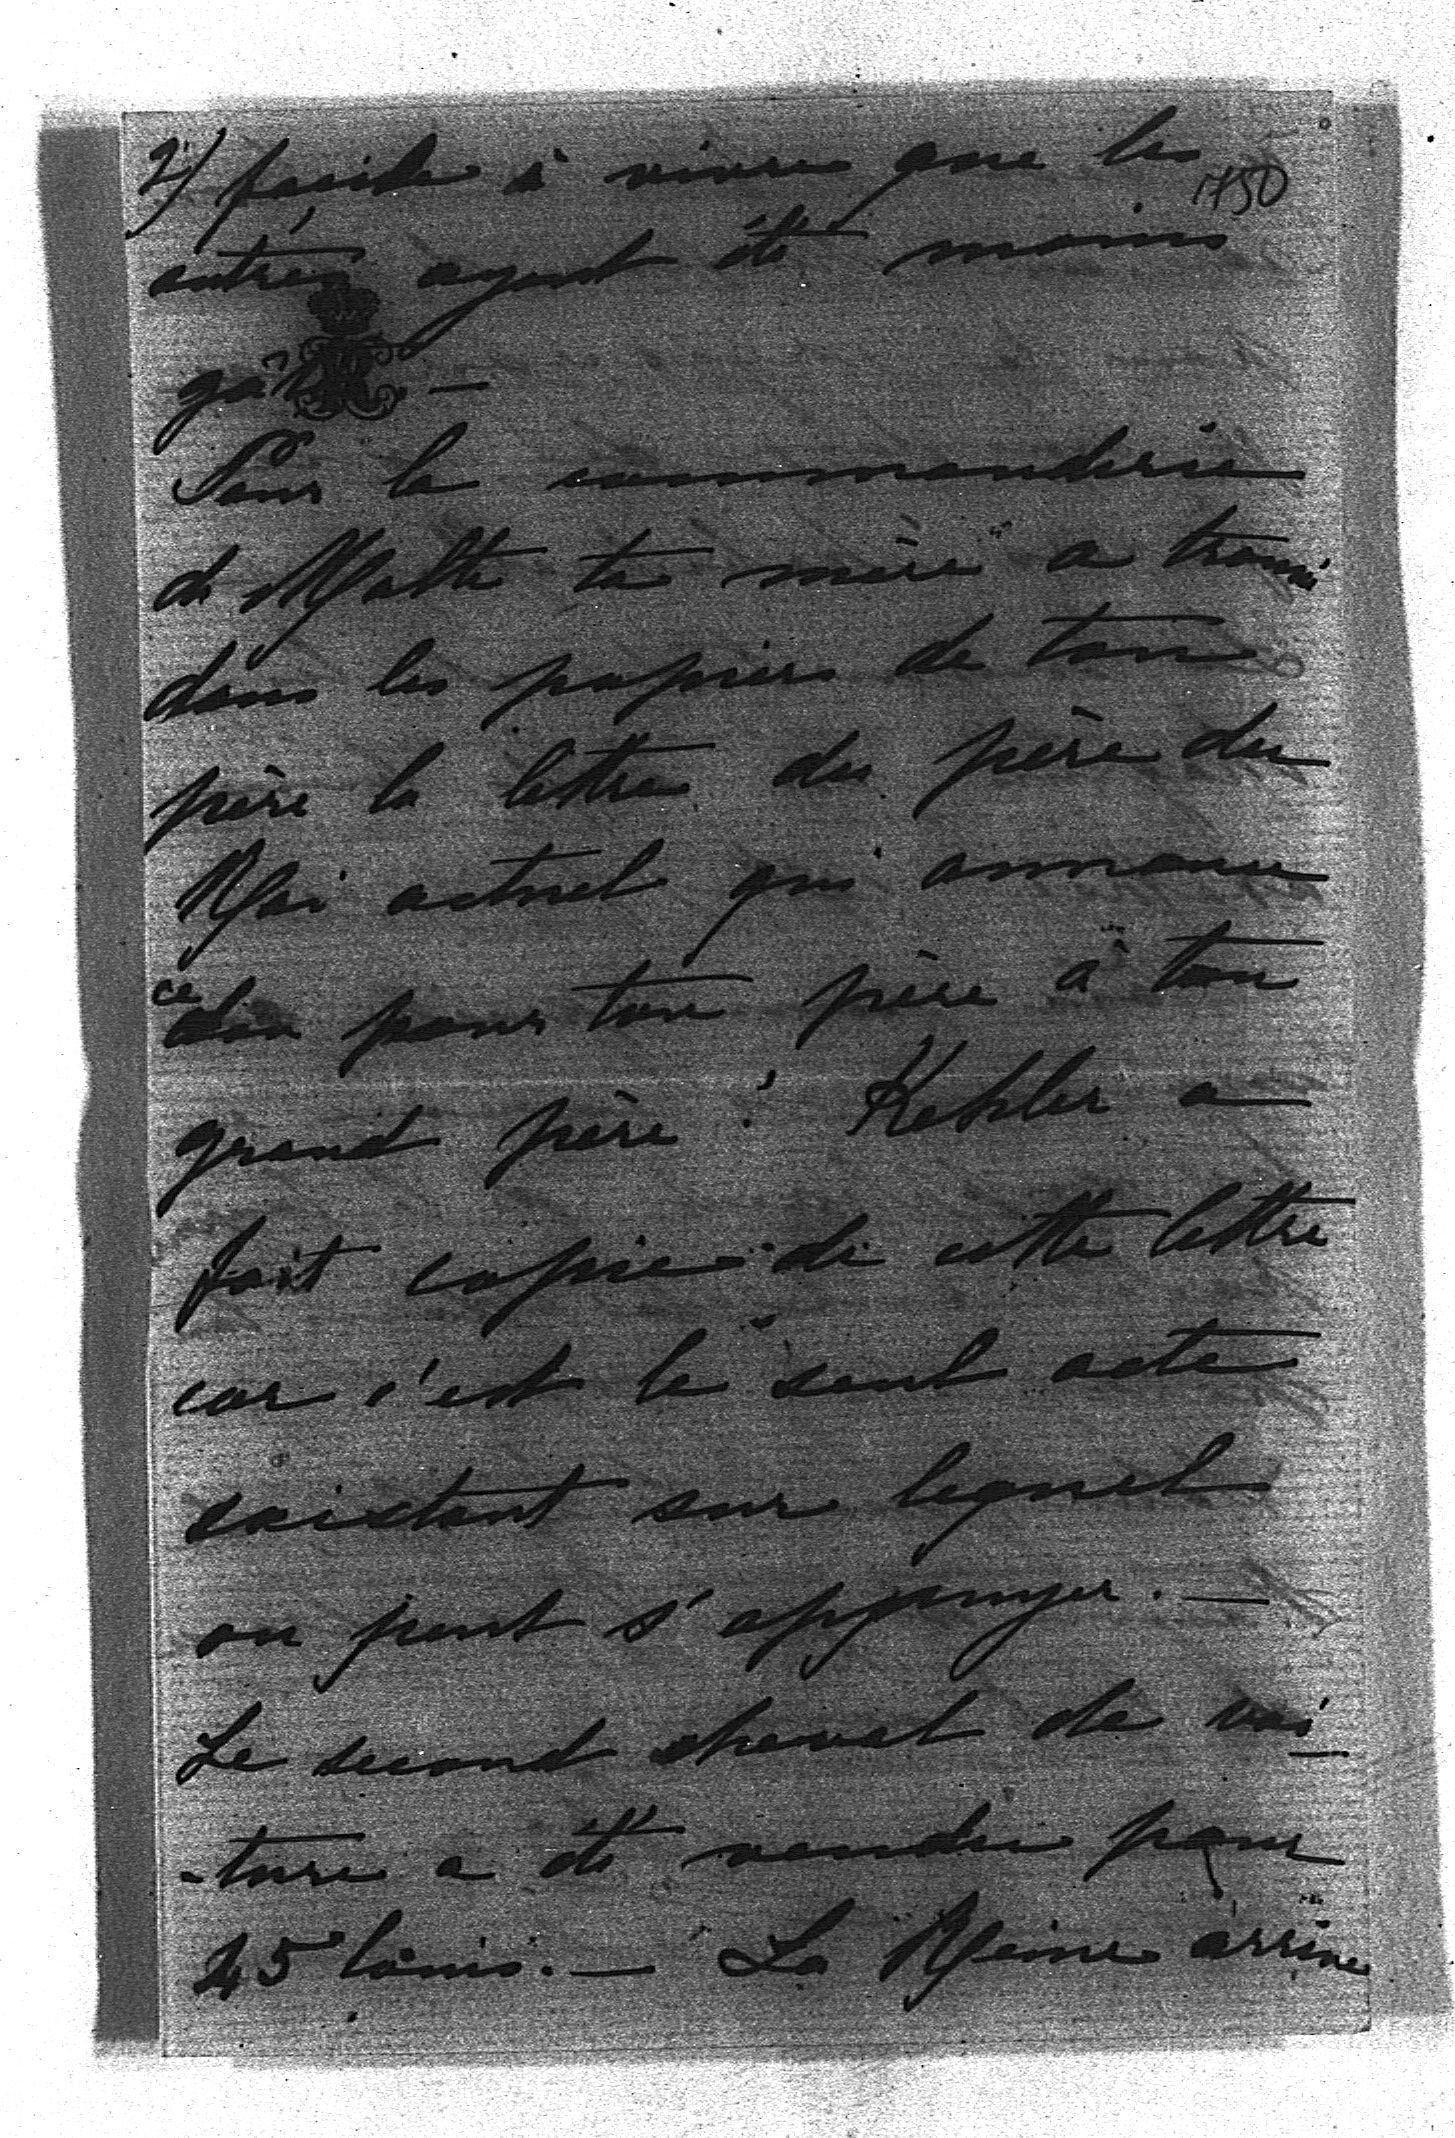 2) facile à vivre que les 1750
autres ayant été moins
gâtés. —
Pour la commanderie
de Malte ta mère a trouvé
dans les papiers de ton
père la lettre du père du
Roi actuel qui annonce
ce don pour ton père à ton
grand père! Kehler a
fait copie de cette lettre
car c'est le seul acte
existant sur lequel
on peut s'appuyer. —
Le second cheval de voi-
-ture a été vendu pour
45 louis. — La Reine arrive